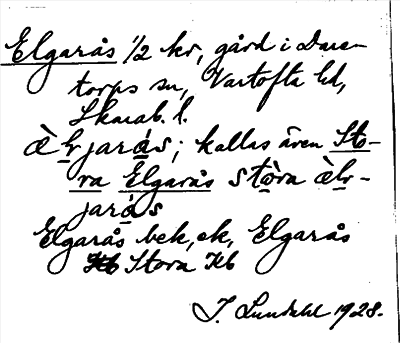 Elgarås 1/2 kr, gård i Dare-
torps sn, Vartofta hd,
Skarab. l.
ὰḷjarás; kallas även Sto-
ra Elgarås stòra ὰḷ-
jarás
Elgarås bek, ek, Elgarås
Stora Kb
J. Lundahl 1928.